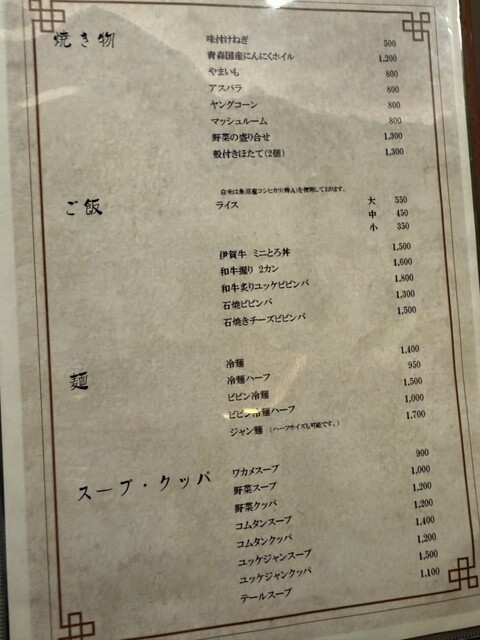 焼き物
味付けねぎ 500
青森国産にんにくホイル 1,200
やまいも 800
アスパラ 800
ヤングコーン 800
マッシュルーム 800
野菜の盛り合せ 1,300
殻付きほたて(2個) 1,300
ご飯
白米は魚沼産コシヒカリ(特A)を使用しております。
ライス 大 550
中 450
小 350
伊賀牛 ミニとろ丼 1,500
和牛握り 2カン 1,600
和牛炙りユッケビビンバ 1,800
石焼ビビンバ 1,300
石焼きチーズビビンバ 1,500
麺
冷麺 1,400
冷麺ハーフ 950
ビビン冷麺 1,500
ビビン冷麺ハーフ 1,000
ジャン麺 (ハーフサイズも可能です。) 1,700
スープ・クッパ
ワカメスープ 900
野菜スープ 1,000
野菜クッパ 1,200
コムタンスープ 1,200
コムタンクッパ 1,400
ユッケジャンスープ 1,200
ユッケジャンクッパ 1,500
テールスープ 1,100